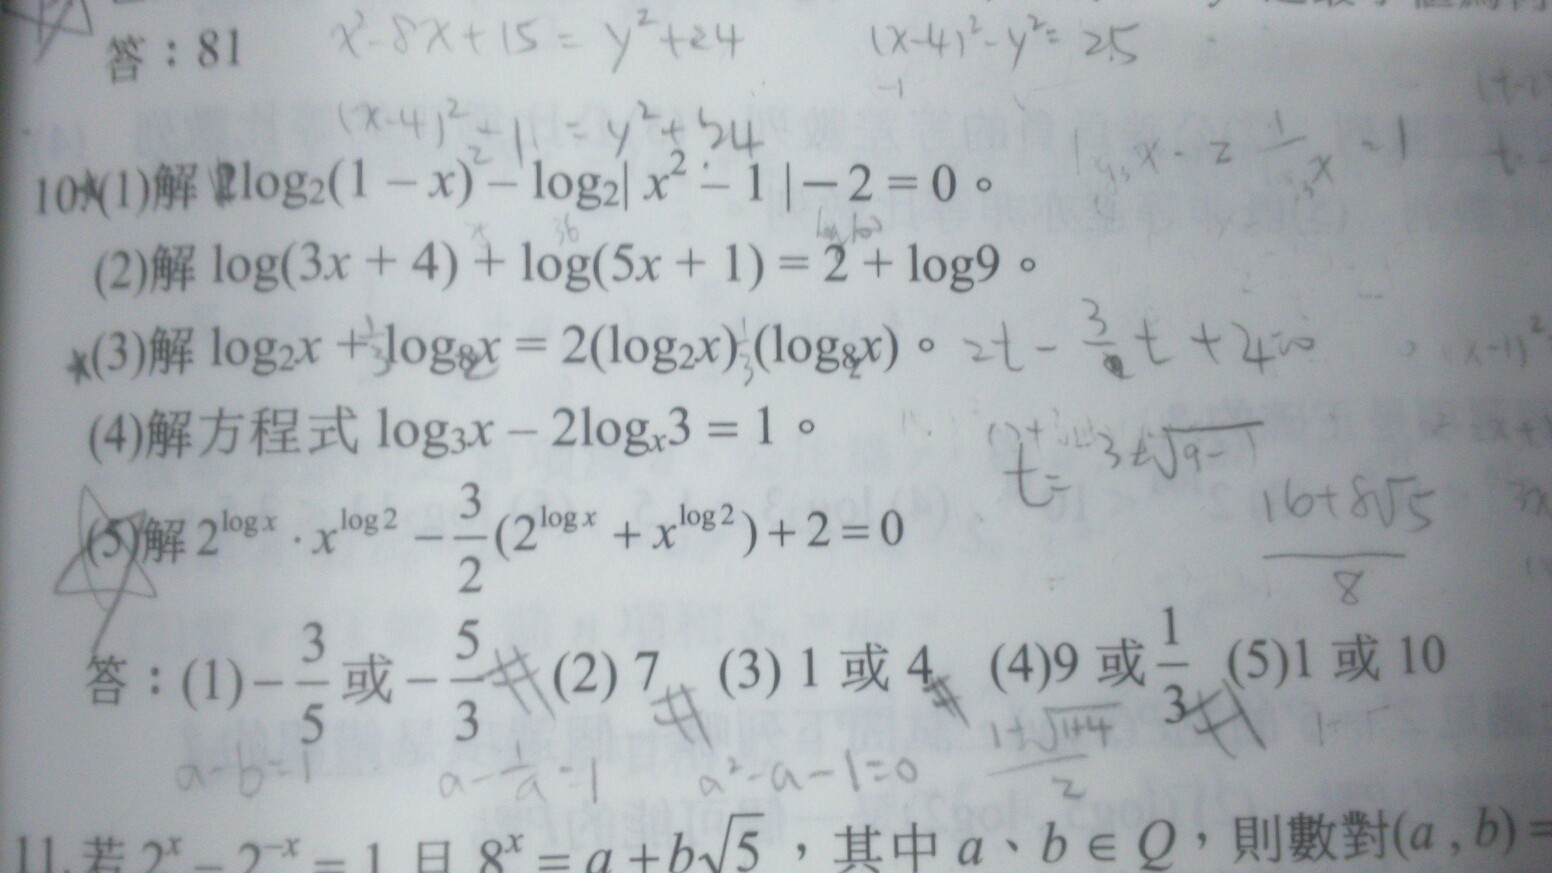 答：81 x²-8x+15=y²+24 (x-4)²-y²=25
(x-4)²-1=y²+24
10.(1)解 2log₂(1 − x) − log₂| x² − 1 |− 2 = 0。
(2)解 log(3x + 4) + log(5x + 1) = 2 + log9。
(3)解 log₂x + log₈x = 2(log₂x)(log₈x)。 2t - 3/2 t + 2=0
(4)解方程式 log₃x − 2logₓ3 = 1。
t= 3±√9-
(5)解 2^{log x} · x^{log 2} − 3/2 (2^{log x} + x^{log 2}) + 2 = 0 16+8√5 / 8
答：(1) − 3/5 或 − 5/3 (2) 7 (3) 1 或 4 (4)9 或 1/3 (5)1 或 10
a-b=1 a-1/a=1 a²-a-1=0 1+√1+4 / 2
11.若 2ˣ − 2⁻ˣ = 1 且 8ˣ = a + b√5，其中 a、b ∈ Q，則數對(a , b) =